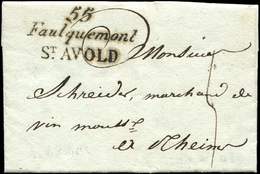 55
Faulquemont
ST AVOLD
Monsieur
Schreider, marchand de
vin mouss
Rheims